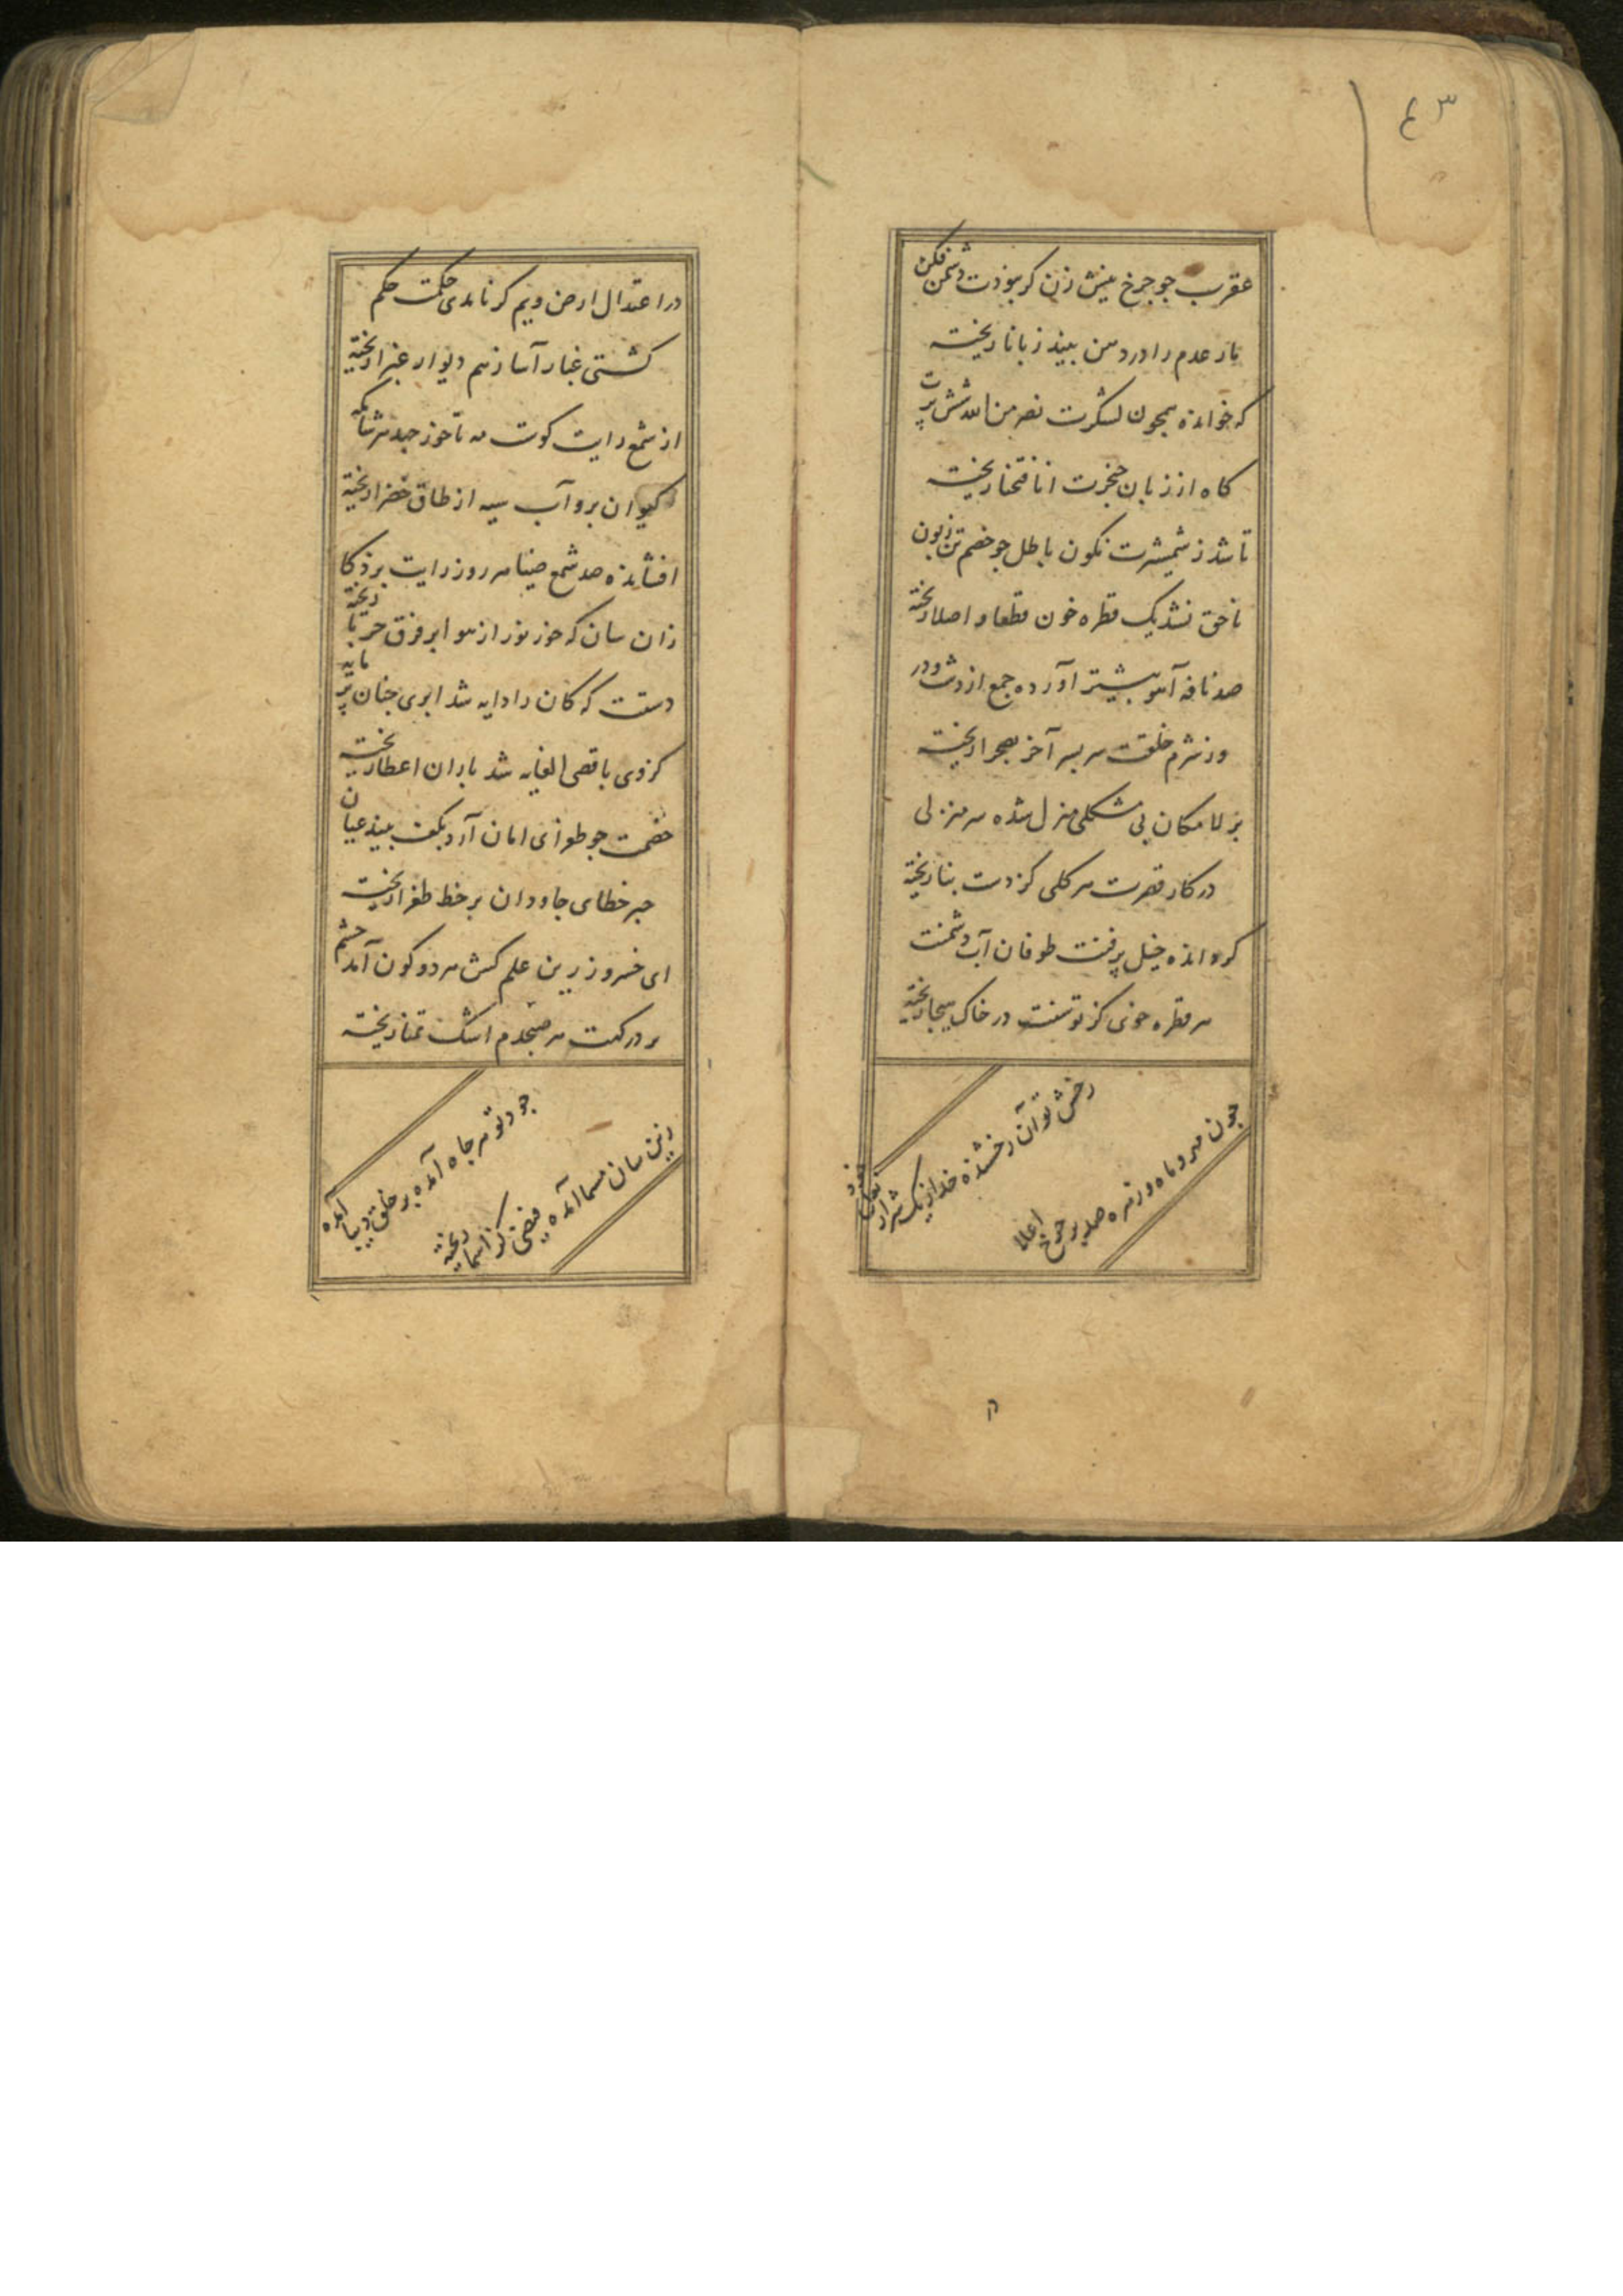 ٤٣
عقرب جو جرخ نیش زن کر بوذت دشمن فکن
بار عدم را در دهن بیند زبانا ریخته
که خوانده همچون لشکرت نصر من الله شش پرت
کاه از زبان خنجرت انا فتحنا ریخته
تا شد ز شمشیرت نکون باطل جو خصم تن زبون
ناحق نشد یک قطره خون قطعا و اصلا ریخته
صد نافه آهو بیشتر آورده جمع از دشت و در
وز شرم خلقت سر بسر آخر بصحرا ریخته
بر لامکان بی مشکلی منزل شده هر منزلی
در کار قصرت هر کلی کز دست بنا ریخته
کرد انده خیل پر فنت طوفان آب دشمنت
هر قطره خونی کز توسنت در خاک بیجا ریخته
رخش تو آن رخشنده خد از یک شرار نعل خود
چون مهر و ماه و زهره صد بر جرخ اعلا
در اعتدال ارض و یم کر نامدی حکمت حکم
کشتی غبار آسا ز هم دیوار غبرا ریخته
از شمع رایت کوت مه تا خوز جبد هر شامکه
کیوان برو آب سیه از طاق خضرا ریخته
افشانده صد شمع ضیا هر روز رایت بر ذکا
زان سان که خوز نور از هوا بر فرق حربا ریخته
دستت که کان را دایه شد ابری جنان پر مایه شد
کز وی باقصی الغایه شد باران اعطا ریخته
خصمت جو طوری امان آرد بکف بیند عیان
جبر خطای جاودان بر خط طغرا ریخته
ای خسرو زرین علم کش هر دو کون آمد حشم
بر درکهت هر صبحدم اشک تمنا ریخته
جود تو هر جاه آمده بر خلق دیبا آمده
زین سان مسما آمده فیضی کز اسما ریخته